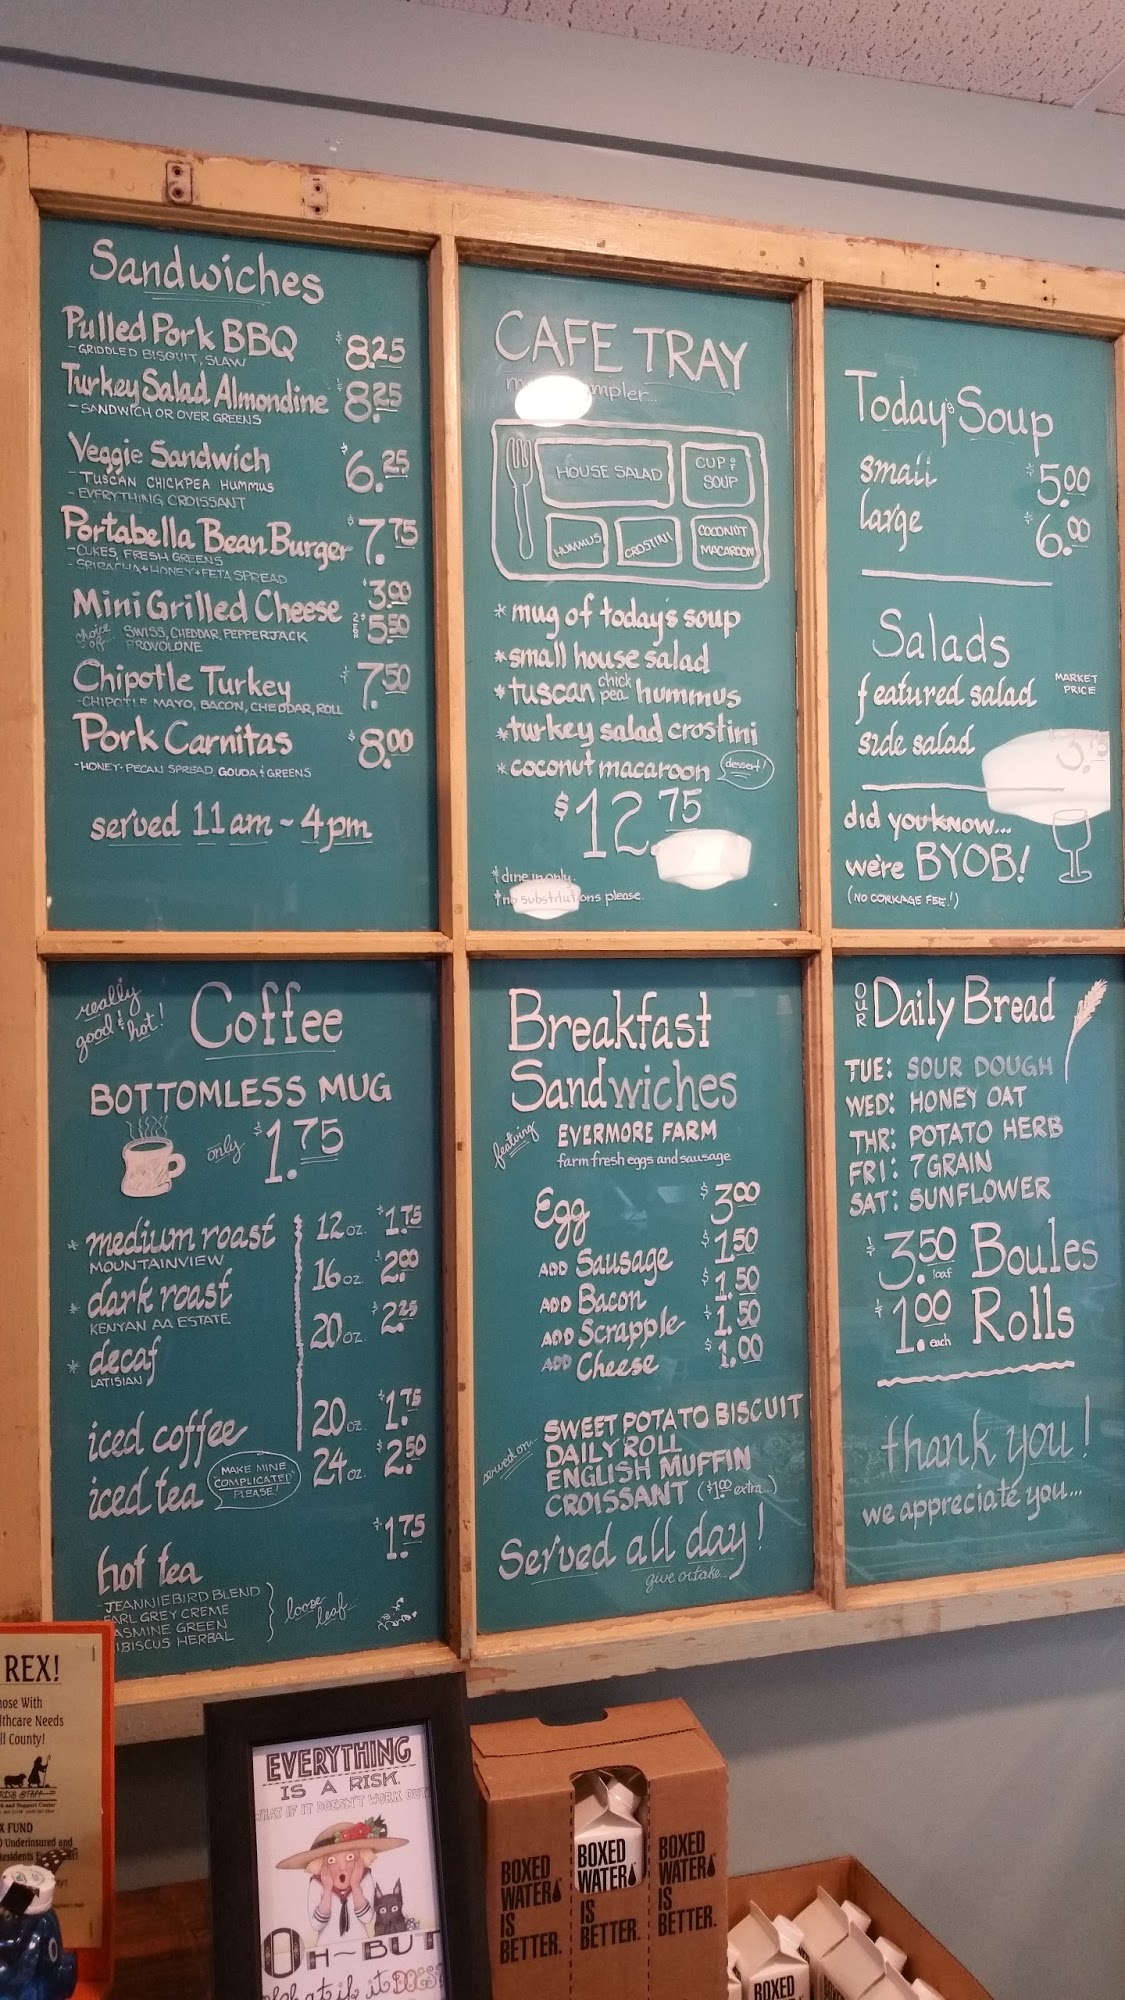 Sandwiches
Pulled Pork BBQ $8.25
- GRIDDLED BISQUIT, SLAW
Turkey Salad Almondine $8.25
- SANDWICH OR OVER GREENS
Veggie Sandwich $6.25
- TUSCAN CHICKPEA HUMMUS
- EVERYTHING CROISSANT
Portabella Bean Burger $7.75
- CUKES, FRESH GREENS
- SRIRACHA + HONEY + FETA SPREAD
Mini Grilled Cheese $3.00
2 FER $5.50
choice of... SWISS, CHEDDAR, PEPPERJACK
PROVOLONE
Chipotle Turkey $7.50
- CHIPOTLE MAYO, BACON, CHEDDAR, ROLL
Pork Carnitas $8.00
- HONEY-PECAN SPREAD, GOUDA & GREENS
served 11am ~ 4pm
CAFE TRAY
HOUSE SALAD
CUP of SOUP
HUMMUS
CROSTINI
COCONUT MACAROON
* mug of today's soup
* small house salad
* tuscan chick pea hummus
* turkey salad crostini
* coconut macaroon dessert!
$12.75
* dine in only.
* no substitutions please.
Today's Soup
small $5.00
large $6.00
Salads
featured salad MARKET PRICE
side salad
did you know...
we're BYOB!
(NO CORKAGE FEE!)
really good & hot!
Coffee
BOTTOMLESS MUG
only $1.75
* medium roast 12 oz. $1.75
MOUNTAINVIEW
* dark roast 16 oz. $2.00
KENYAN AA ESTATE
* decaf 20 oz. $2.25
LATISIAN
iced coffee 20 oz. $1.75
iced tea 24 oz. $2.50
MAKE MINE COMPLICATED PLEASE!
hot tea $1.75
- JEANNIEBIRD BLEND
EARL GREY CREME
JASMINE GREEN
HIBISCUS HERBAL
loose leaf...
Breakfast
Sandwiches
featuring EVERMORE FARM
farm fresh eggs and sausage
Egg $3.00
ADD Sausage $1.50
ADD Bacon $1.50
ADD Scrapple $1.50
ADD Cheese $1.00
served on... SWEET POTATO BISCUIT
DAILY ROLL
ENGLISH MUFFIN
CROISSANT ($1.00 extra..)
Served all day!
give or take...
OUR Daily Bread
TUE: SOUR DOUGH
WED: HONEY OAT
THR: POTATO HERB
FRI: 7 GRAIN
SAT: SUNFLOWER
$3.50 loaf Boules
$1.00 each Rolls
thank you!
we appreciate you...
REX!
County!
FUND
Underinsured and
EVERYTHING
IS A RISK.
WHAT IF IT DOESN'T WORK OUT?
OH~BUT
what if it DOES?
BOXED WATER IS BETTER.
BOXED WATER IS BETTER.
BOXED WATER IS BETTER.
BOXED
BOXED